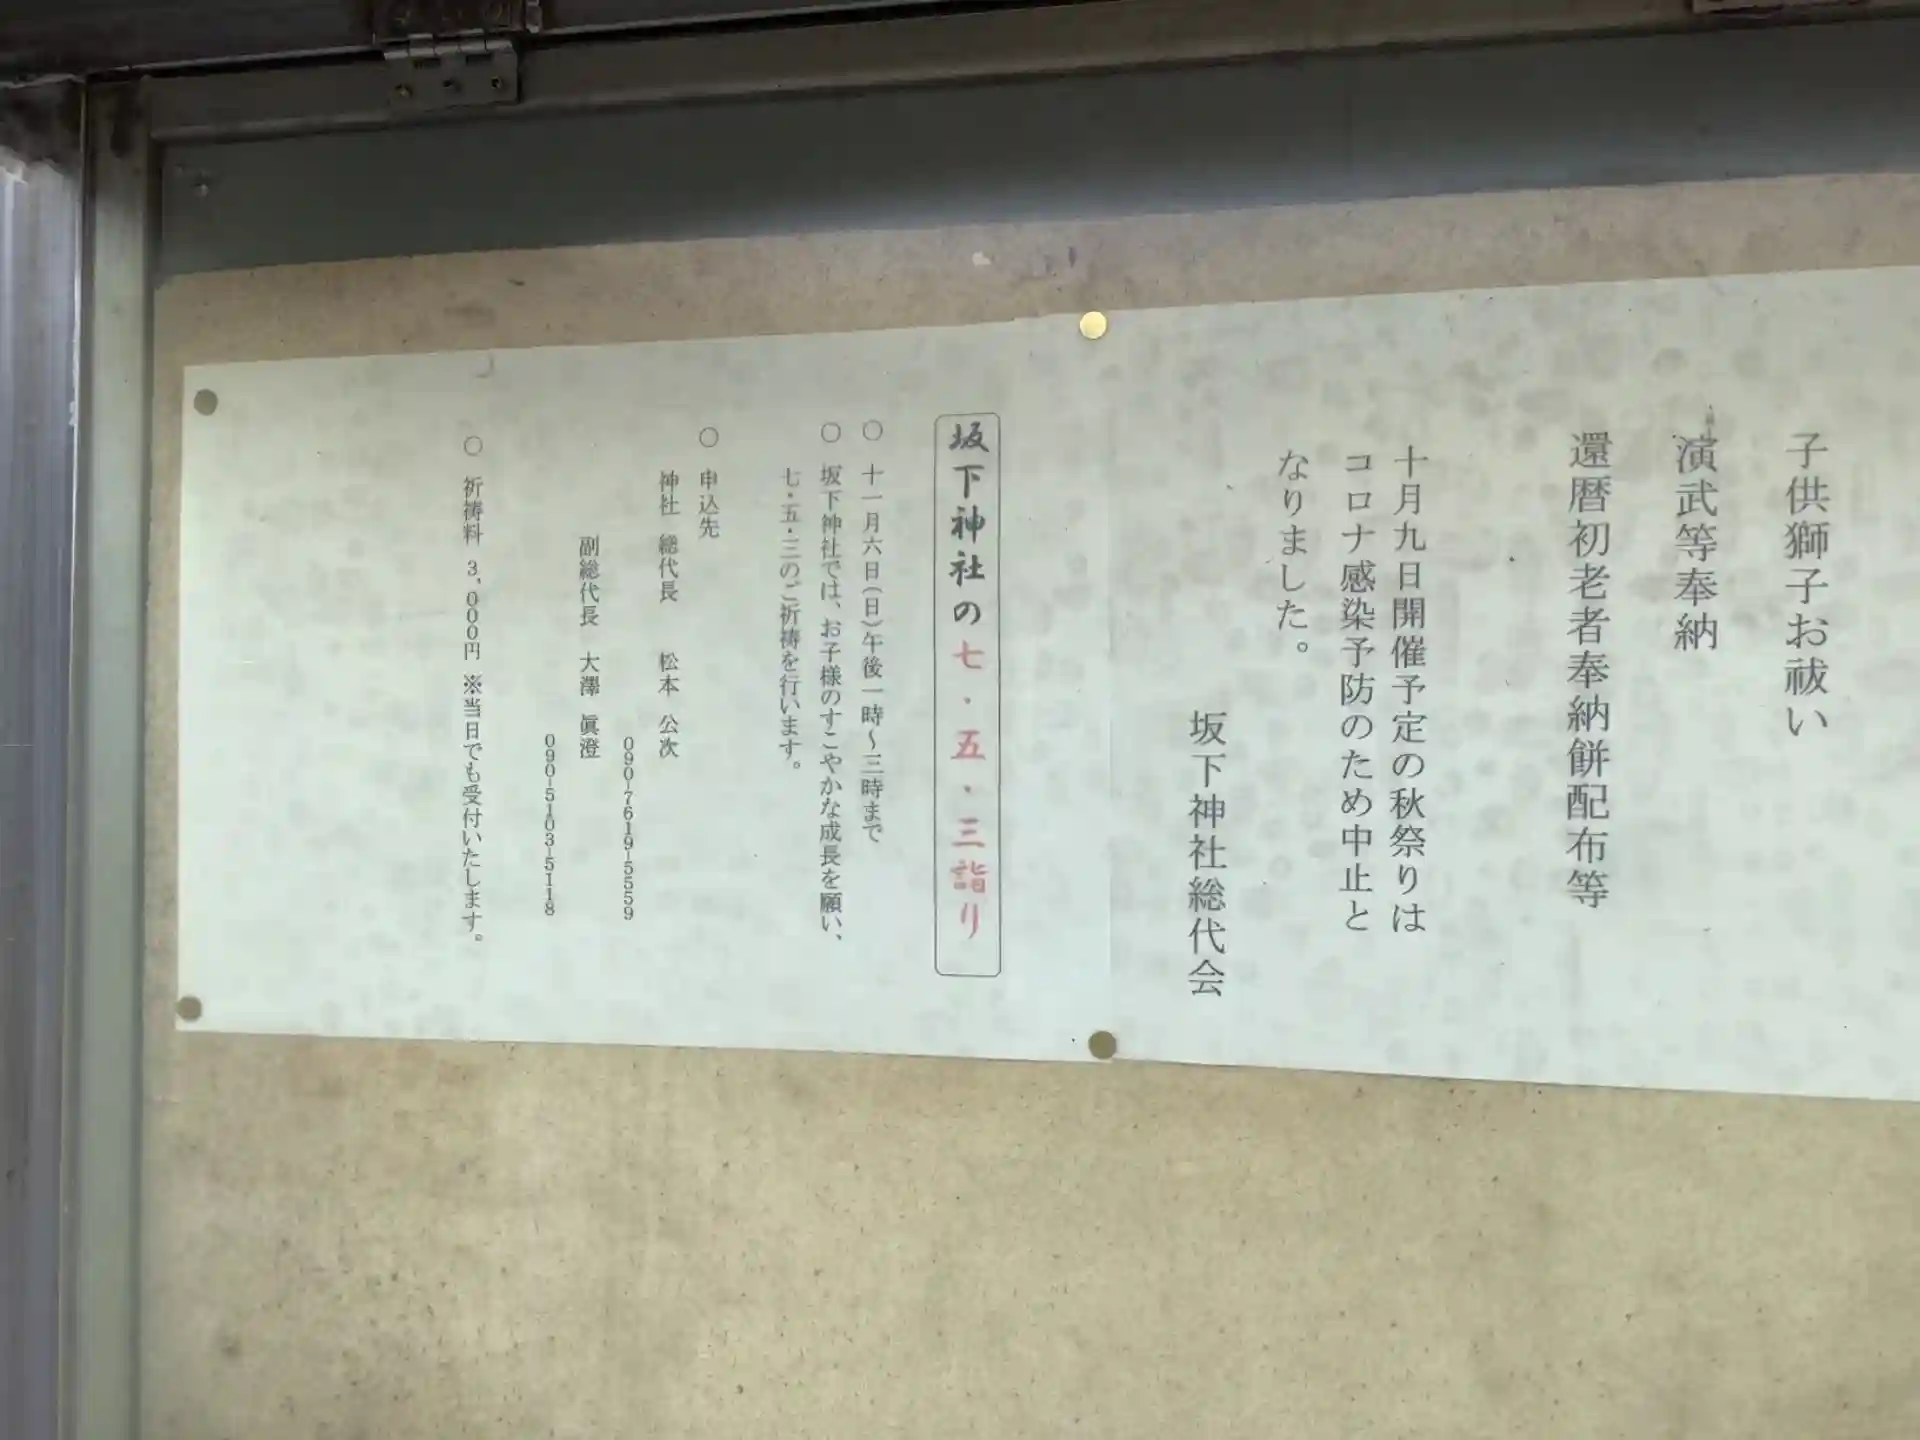 子供獅子お祓い
演武等奉納
還暦初老者奉納餅配布等
十月九日開催予定の秋祭りは
コロナ感染予防のため中止と
なりました。
坂下神社総代会
坂下神社の七・五・三詣り
○ 十一月六日(日)午後一時~三時まで
○ 坂下神社では、お子様のすこやかな成長を願い、
七・五・三のご祈祷を行います。
○ 申込先
神社 総代長 松本 公次
090-7619-5559
副総代長 大澤 眞澄
090-5103-5118
○ 祈祷料 3,000円 ※当日でも受付いたします。